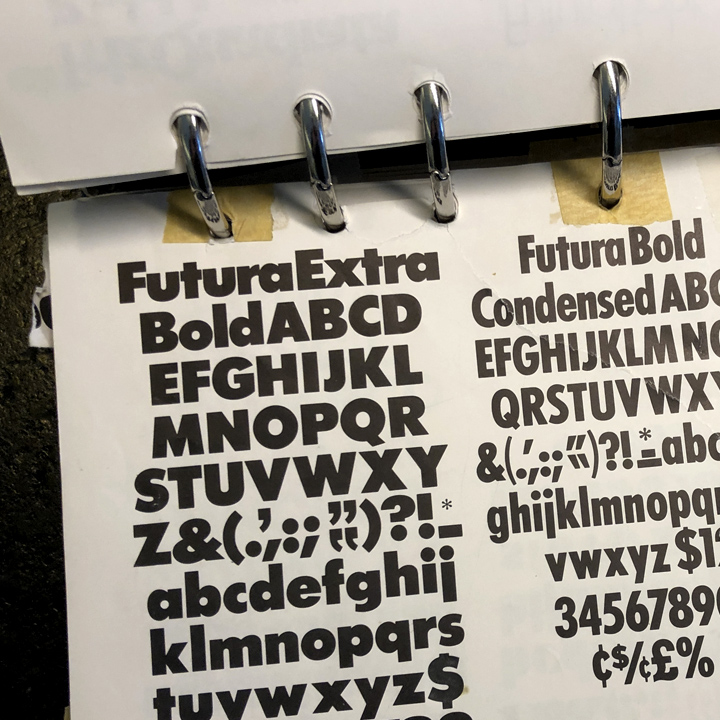 FuturaExtra
BoldABCD
EFGHIJKL
MNOPQR
STUVWXY
Z&(.,';:;"")?!*-
abcdefghij
klmnopqrs
tuvwxyz$
Futura Bold
Condensed ABC
EFGHIJKLMNO
QRSTUVWXY
&(.,';:;"")?!*-abc
ghijklmnopqr
vwxyz $12
34567890
¢$/¢£%